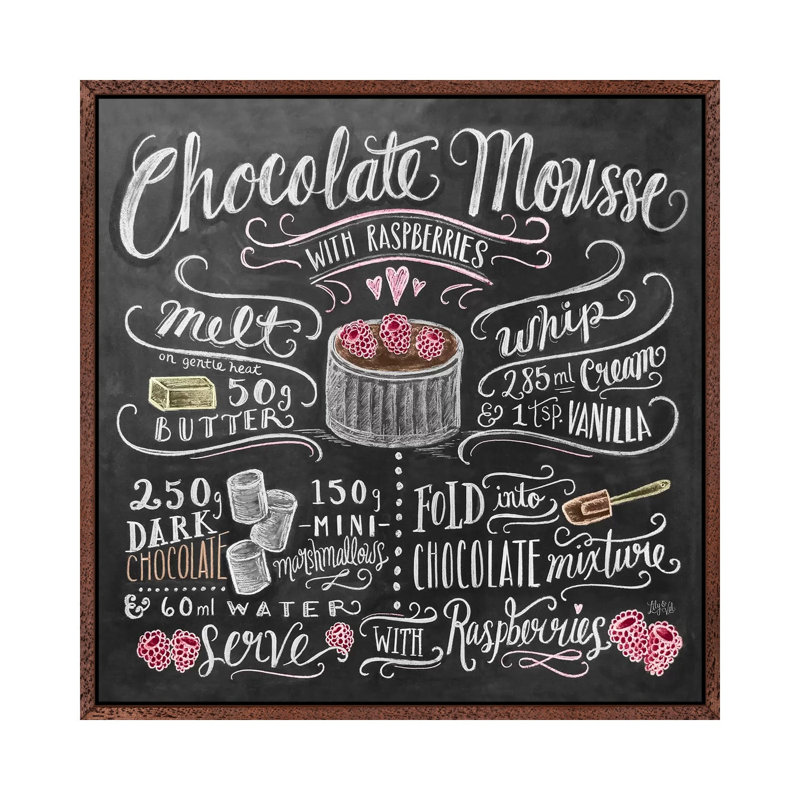 Chocolate Mousse
WITH RASPBERRIES
melt
on gentle heat
50g
BUTTER
250g
DARK
CHOCOLATE
150g
-MINI-
marshmallows
& 60ml WATER
whip
285ml Cream
& 1 tsp. VANILLA
FOLD into
CHOCOLATE mixture
Serve WITH Raspberries
Lily & Val